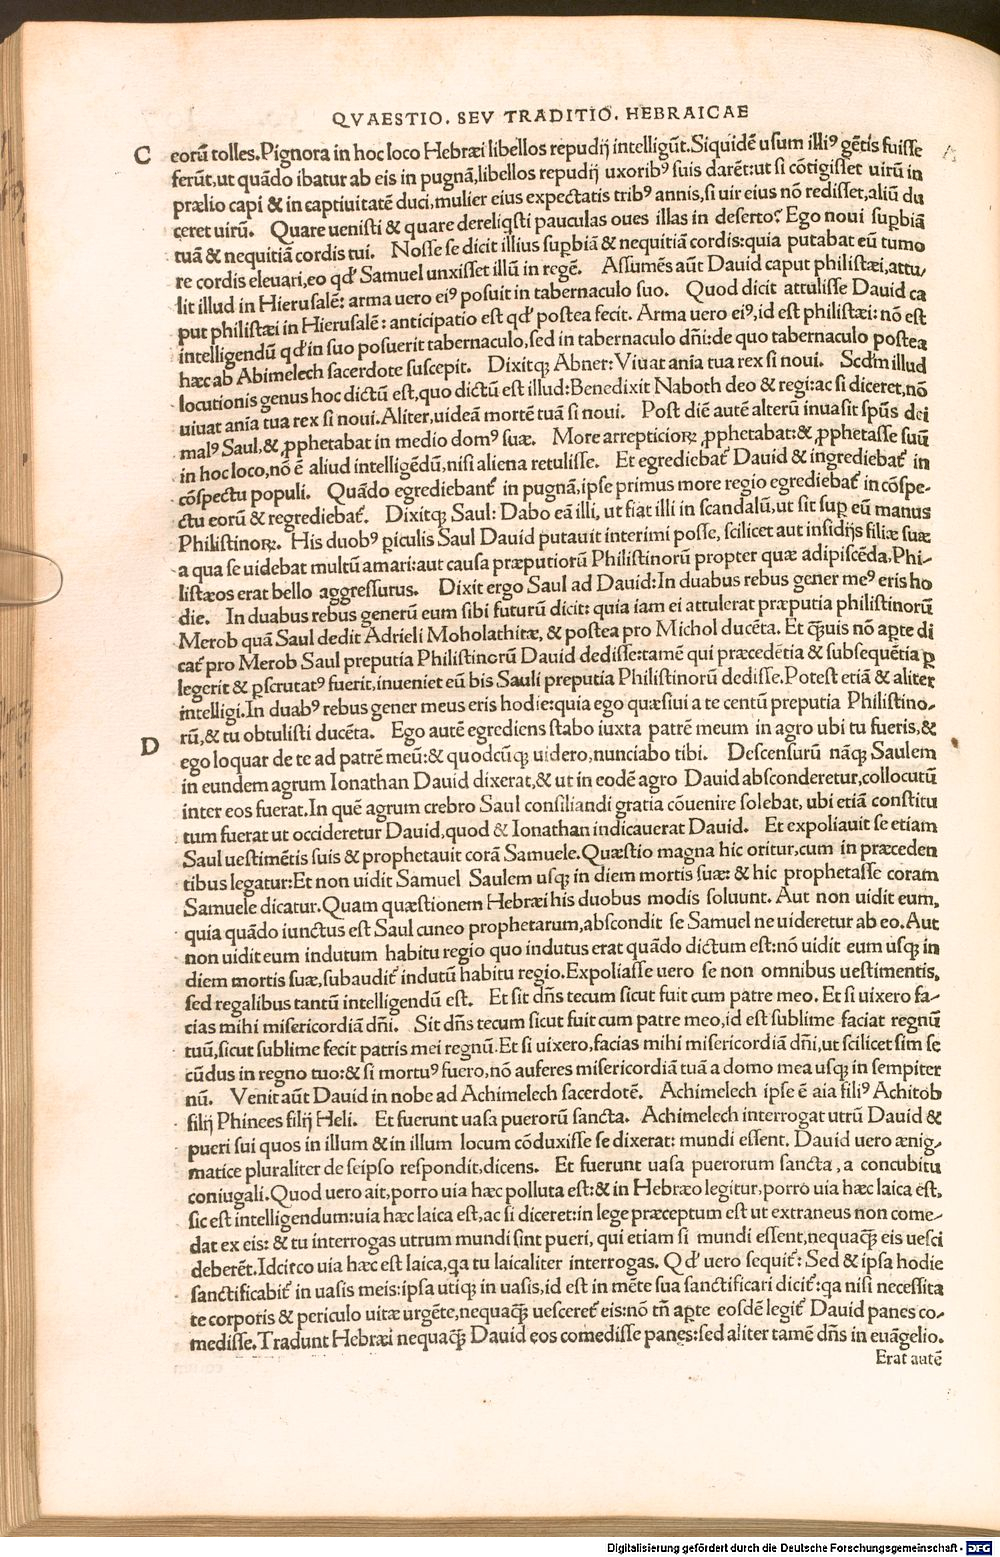 QVAESTIO. SEV TRADITIO. HEBRAICAE
C
eorũ tolles.Pignora in hoc loco Hebræi libellos repudij intelligũt.Siquidẽ usum illiꝰ gẽtis fuisse
ferũt,ut quãdo ibatur ab eis in pugnã,libellos repudij uxoribꝰ suis darẽt:ut si cõtigisset uirũ in
prælio capi & in captiuitatẽ duci,mulier eius expectatis tribꝰ annis,si uir eius nõ redisset,aliũ du
ceret uirũ. Quare uenisti & quare dereliqsti pauculas oues illas in deserto? Ego noui suꝑbiã
tuã & nequitiã cordis tui. Nosse se dicit illius suꝑbiã & nequitiã cordis:quia putabat eũ tumo
re cordis eleuari,eo qd' Samuel unxisset illũ in regẽ. Assumẽs aũt Dauid caput philistæi,attu-
lit illud in Hierusalẽ: arma uero eiꝰ posuit in tabernaculo suo. Quod dicit attulisse Dauid ca
put philistæi in Hierusalẽ: anticipatio est qd' postea fecit. Arma uero eiꝰ,id est philistæi: nõ est
intelligendũ qd' in suo posuerit tabernaculo,sed in tabernaculo dñi:de quo tabernaculo postea
hæc ab Abimelech sacerdote suscepit. Dixitqꝫ Abner: Viuat aniã tua rex si noui. Scdm̃ illud
locutionis genus hoc dictũ est,quo dictũ est illud:Benedixit Naboth deo & regi:ac si diceret,nõ
uiuat aniã tua rex si noui.Aliter,uideã mortẽ tuã si noui. Post diẽ autẽ alterũ inuasit spũs dei
malꝰ Saul,& ꝓphetabat in medio domꝰ suæ. More arrepticioꝝ ꝓphetabat:& ꝓphetasse suũ
in hoc loco,nõ ẽ aliud intelligẽdũ,nisi aliena retulisse. Et egrediebat̃ Dauid & ingrediebat̃ in
cõspectu populi. Quãdo egrediebant̃ in pugnã,ipse primus more regio egrediebat̃ in cõspe-
ctu eorũ & regrediebat̃. Dixitqꝫ Saul: Dabo eã illi, ut fiat illi in scandalũ,ut sit suꝑ eũ manus
Philistinoꝝ. His duobꝰ ꝑiculis Saul Dauid putauit interimi posse, scilicet aut insidijs filiæ suæ
a qua se uidebat multũ amari:aut causa præputiorũ Philistinorũ propter quæ adipiscẽda,Phi-
listæos erat bello aggressurus. Dixit ergo Saul ad Dauid:In duabus rebus gener meꝰ eris ho
die. In duabus rebus generũ eum sibi futurũ dicit: quia iam ei attulerat præputia philistinorũ
Merob quã Saul dedit Adrieli Moholathitæ, & postea pro Michol ducẽta. Et q̃uis nõ aꝑte di
cat̃ pro Merob Saul preputia Philistinorũ Dauid dedisse:tamẽ qui præcedẽtia & subsequẽtia ꝑ
legerit & ꝑscrutatꝰ fuerit,inueniet eũ bis Sauli preputia Philistinorũ dedisse.Potest etiã & aliter
intelligi.In duabꝰ rebus gener meus eris hodie:quia ego quæsiui a te centũ preputia Philistino-
rũ,& tu obtulisti ducẽta. Ego autẽ egrediens stabo iuxta patrẽ meum in agro ubi tu fueris,&
D
ego loquar de te ad patrẽ meũ:& quodcũqꝫ uidero,nunciabo tibi. Descensurũ nãqꝫ Saulem
in eundem agrum Ionathan Dauid dixerat,& ut in eodẽ agro Dauid absconderetur,collocutũ
inter eos fuerat.In quẽ agrum crebro Saul consiliandi gratia cõuenire solebat, ubi etiã constitu
tum fuerat ut occideretur Dauid,quod & Ionathan indicauerat Dauid. Et expoliauit se etiam
Saul uestimẽtis suis & prophetauit corã Samuele.Quæstio magna hic oritur,cum in præceden
tibus legatur:Et non uidit Samuel Saulem usqꝫ in diem mortis suæ: & hic prophetasse coram
Samuele dicatur.Quam quæstionem Hebræi his duobus modis soluunt. Aut non uidit eum,
quia quãdo iunctus est Saul cuneo prophetarum,abscondit se Samuel ne uideretur ab eo. Aut
non uidit eum indutum habitu regio quo indutus erat quãdo dictum est:nõ uidit eum usqꝫ in
diem mortis suæ,subaudit̃ indutũ habitu regio.Expoliasse uero se non omnibus uestimentis,
sed regalibus tantũ intelligendũ est. Et sit dñs tecum sicut fuit cum patre meo. Et si uixero fa-
cias mihi misericordiã dñi. Sit dñs tecum sicut fuit cum patre meo,id est sublime faciat regnũ
tuũ,sicut sublime fecit patris mei regnũ.Et si uixero,facias mihi misericordiã dñi,ut scilicet sim se
cũdus in regno tuo:& si mortuꝰ fuero,nõ auferes misericordiã tuã a domo mea usqꝫ in sempiter
nũ. Venit aũt Dauid in nobe ad Achimelech sacerdotẽ. Achimelech ipse ẽ aia filiꝰ Achitob
filij Phinees filij Heli. Et fuerunt uasa puerorũ sancta. Achimelech interrogat utrũ Dauid &
pueri sui quos in illum & in illum locum cõduxisse se dixerat: mundi essent. Dauid uero ænig-
matice pluraliter de seipso respondit,dicens. Et fuerunt uasa puerorum sancta, a concubitu
coniugali.Quod uero ait,porro uia hæc polluta est:& in Hebræo legitur,porro uia hæc laica est,
sic est intelligendum:uia hæc laica est,ac si diceret:in lege præceptum est ut extraneus non come-
dat ex eis: & tu interrogas utrum mundi sint pueri, qui etiam si mundi essent,nequaq̃ eis uesci
deberẽt.Idcirco uia hæc est laica,qa tu laicaliter interrogas. Qd' uero sequit̃: Sed & ipsa hodie
sanctificabit̃ in uasis meis:ipsa utiqꝫ in uasis,id est in mẽte sua sanctificari dicit̃:qa nisi necessita
te corporis & periculo uitæ urgẽte,nequaq̃ uesceret̃ eis:nõ tñ aꝑte eosdẽ legit̃ Dauid panes co-
medisse.Tradunt Hebræi nequaq̃ Dauid eos comedisse panes:sed aliter tamẽ dñs in euãgelio.
Erat autẽ
Digitalisierung gefördert durch die Deutsche Forschungsgemeinschaft - DFG